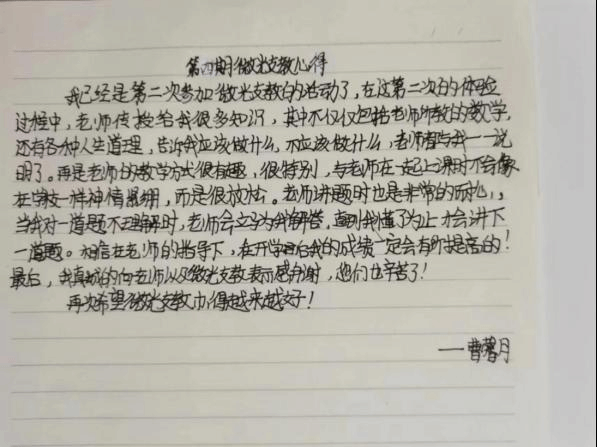 第四期微光支教心得
我已经是第二次参加微光支教的活动了，在这第二次的体验
过程中，老师传授给我很多知识，其中不仅仅包括老师所教的数学，
还有各种人生道理，告诉我应该做什么，不应该做什么，老师都与我一一说
明了。再是老师的教学方式很有趣，很特别，与老师在一起上课时不会像
在学校一样神情紧绷，而是很放松。老师讲题时也是非常的耐心，
当我对一道题不理解时，老师会立马为我解答，直到我懂了为止才会讲下
一道题。相信在老师的指导下，在开学后我的成绩一定会有所提高的！
最后，我真诚的向老师以及微光支教表示感谢，您们也辛苦了！
再次希望微光支教办得越来越好！
——曹馨月